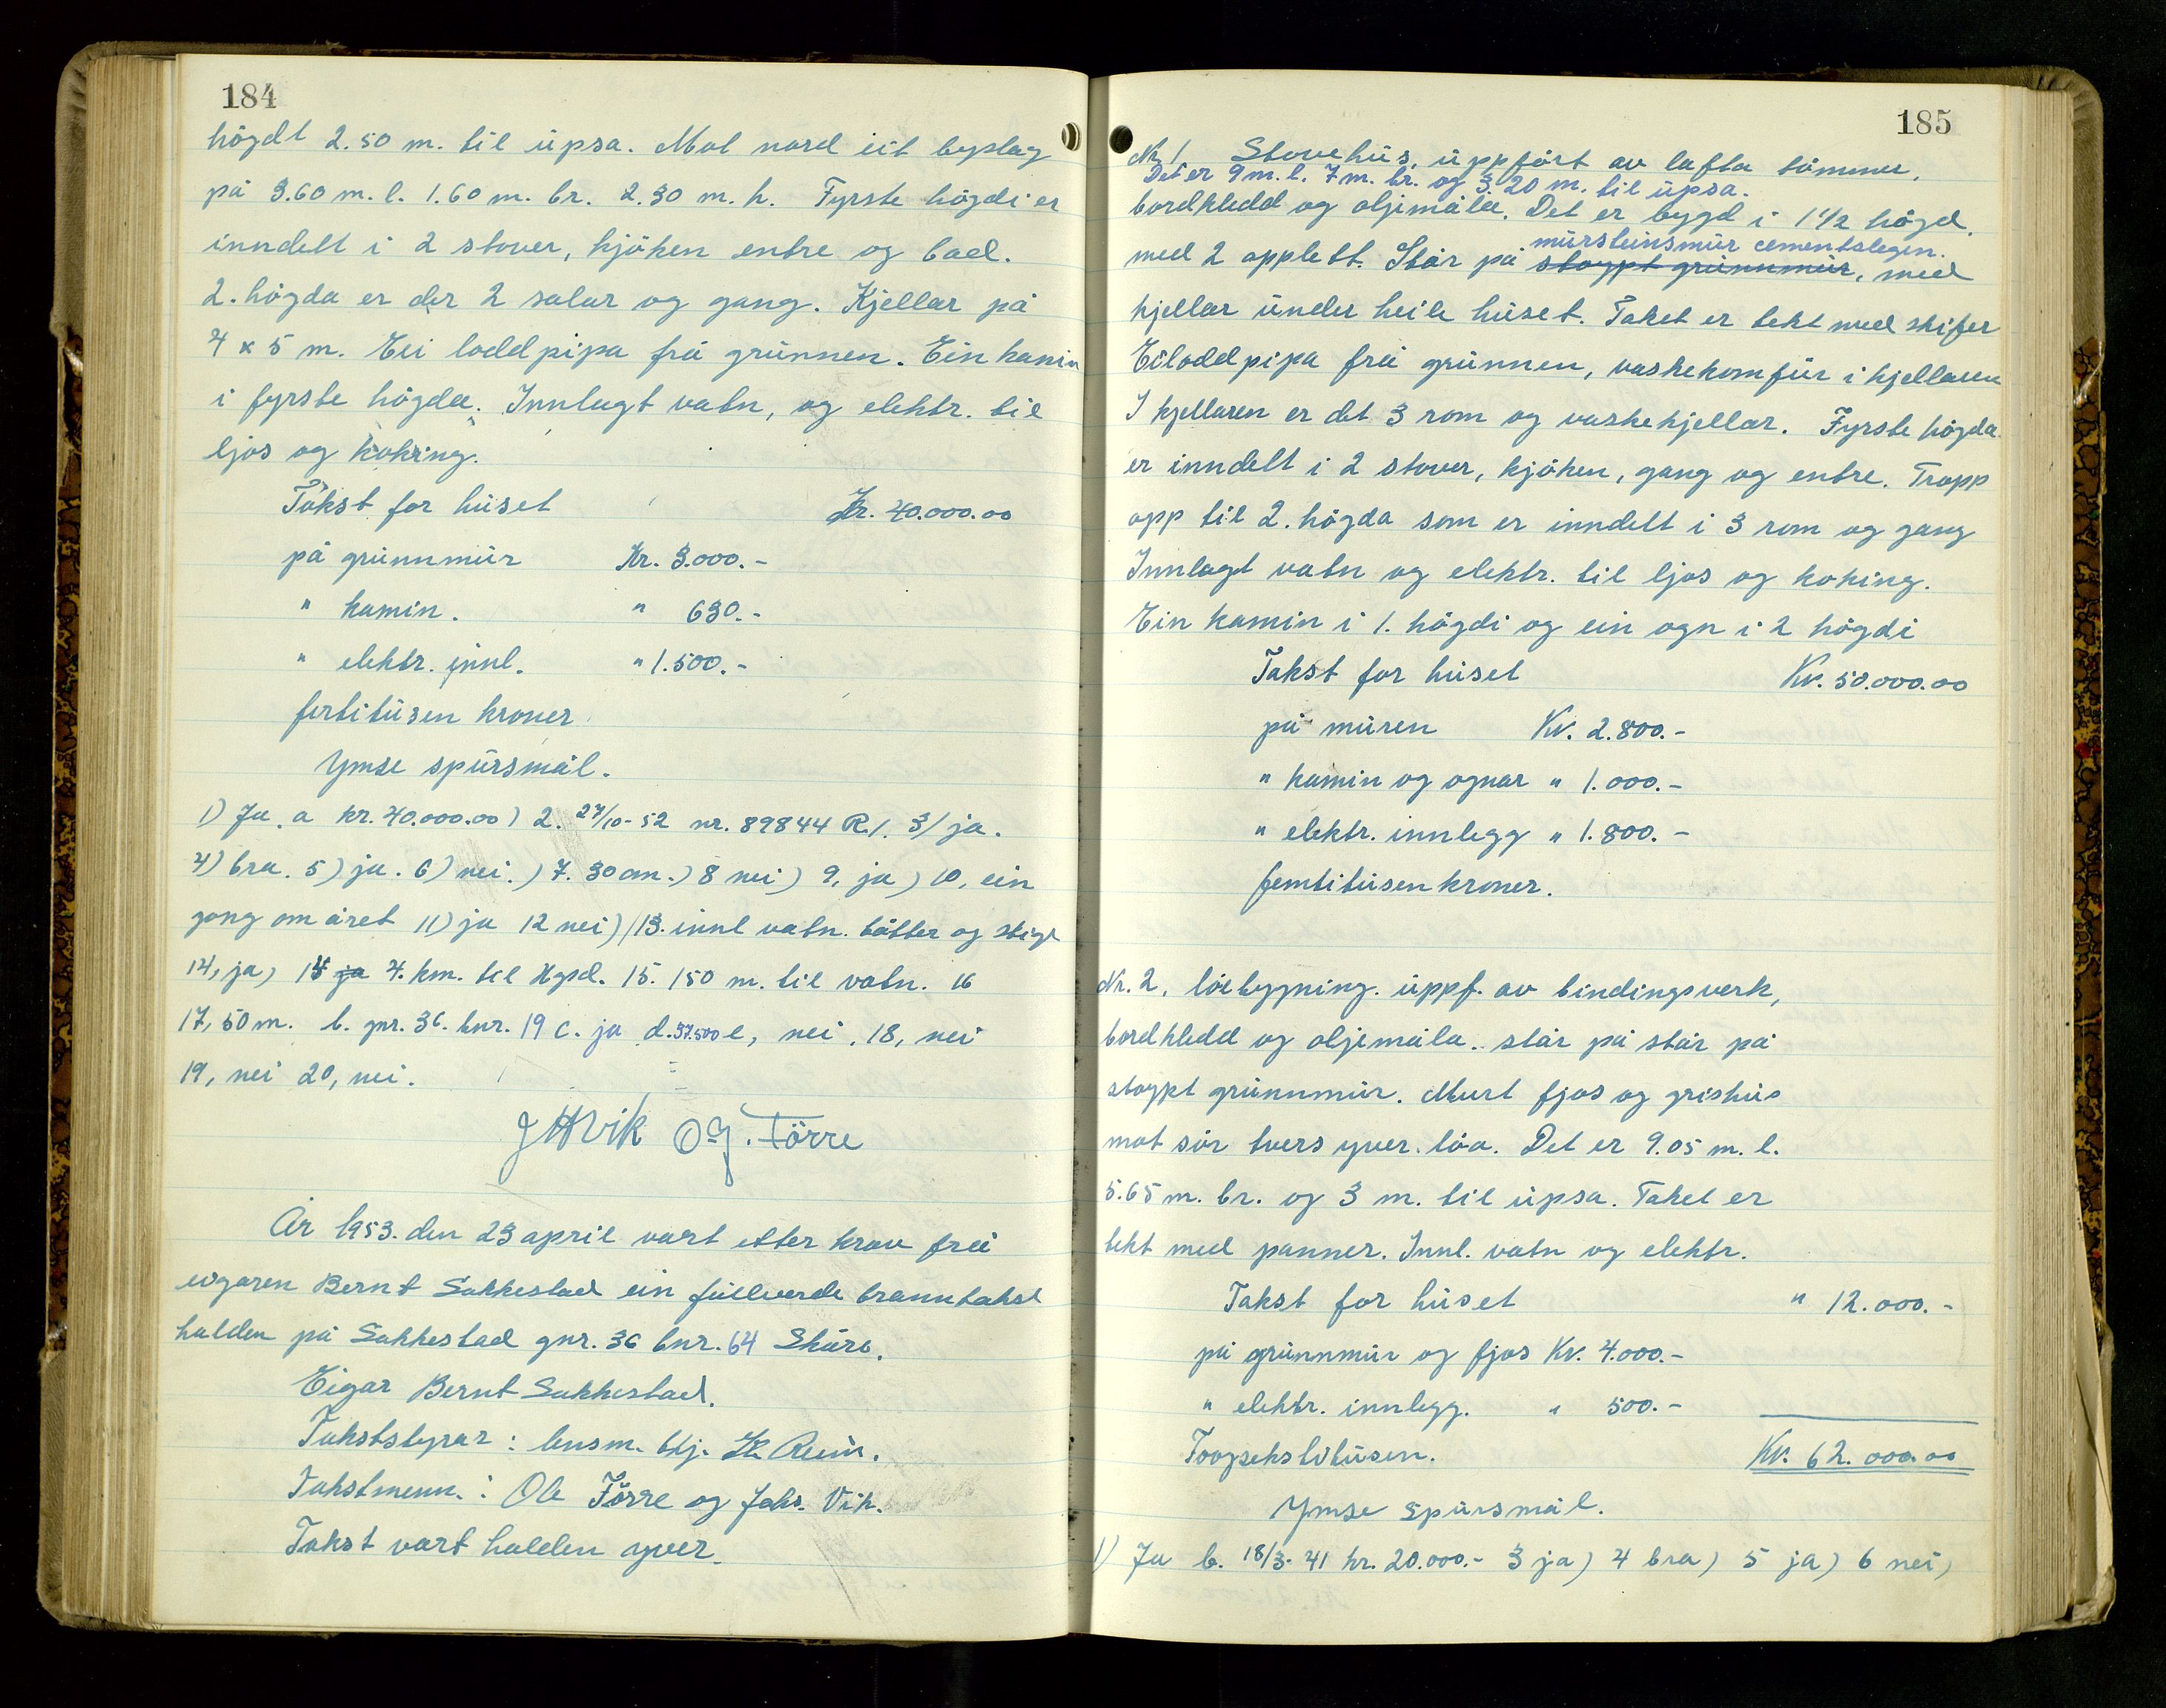 184
högdt 2.50 m. til upsa. Mot nord eit byslag
på 3.60 m. l. 1.60 m. br. 2.30 m. h. Fyrste högdi er
inndelt i 2 stover, kjöken entre og bad.
2. högda er der 2 salar og gang. Kjellar på
4 x 5 m. Ei loddpipa frå grunnen. Ein kamin
i fyrste högda. Innlagt vatn, og elektr. til
ljos og koking.
Takst for huset Kr. 40.000.00
på grunnmur Kr. 3.000.-
" kamin. " 630.-
" elektr. innl. " 1.500.-
fertitusen kroner
Ymse spursmål.
1) Ja. a kr. 40.000.00) 2. 27/10-52 nr. 89844 R./. 3/ ja.
4) bra. 5) ja. 6) nei.) 7. 30 cm.) 8 nei) 9, ja) 10, ein
gong om året 11) ja 12 nei) 13. innl vatn. bötter og stige
14, ja, 14 ja 4. km. til Hgsd. 15. 150 m. til vatn. 16
17, 50 m. b. gnr. 36. bnr. 19 c. ja d. 37.500 e, nei, 18, nei
19, nei 20, nei.
JHVik O J. Förre
År 1953. den 23 april vart etter krav frå
eigaren Bernt Sakkestad ein fullverde branntakst
halden på Sakkestad gnr. 36 bnr. 64 Skåre.
Eigar Bernt Sakkestad.
Takststyrar: lensm. btj.
Takstmenn.: Ole Förre og Johs. Vik.
Takst vart halden yver.
185
Nr 1 Stovehus, uppfört av lafta tömmer,
Det er 9 m. l. 7 m. br. og 3.20 m. til upsa.
bordkledd og oljemåla. Det er bygd i 1 1/2 högd.
mursteinsmur cementslegen.
med 2 opplett. Står på stoypt grunnmur, med
kjellar under heile huset. Taket er tekt med skifer
Ei loddpipa frå grunnen, vaskekomfur i kjellaren
I kjellaren er det 3 rom og vaskekjellar. Fyrste högda
er inndelt i 2 stover, kjöken, gang og entre. Tropp
opp til 2. högda som er inndelt i 3 rom og gang
Innlagt vatn og elektr. til ljos og koking.
Ein kamin i 1. högdi og ein ogn i 2 högdi
Takst for huset Kr. 50.000.00
på muren Kr. 2.800.-
" kamin og ognar " 1.000.-
" elektr. innlegg " 1.800.-
femtitusen kroner.
Nr. 2, löebygning. uppf. av bindingsverk,
bordkledd og oljemåla. står på står på
stoypt grunnmur. Murt fjos og grishus
mot sör tvers yver. löa. Det er 9.05 m. l.
5.65 m. br. og 3 m. til upsa. Taket er
tekt med panner. Innl. vatn og elektr.
Takst for huset " 12.000.-
på grunnmur og fjos Kr. 4.000.-
" elektr. innlegg. " 500.-
Toogsekstitusen. Kr. 62.000.00
Ymse spursmål.
1) Ja b. 18/3-41 kr. 20.000.- 3 ja) 4 bra) 5 ja) 6 nei)